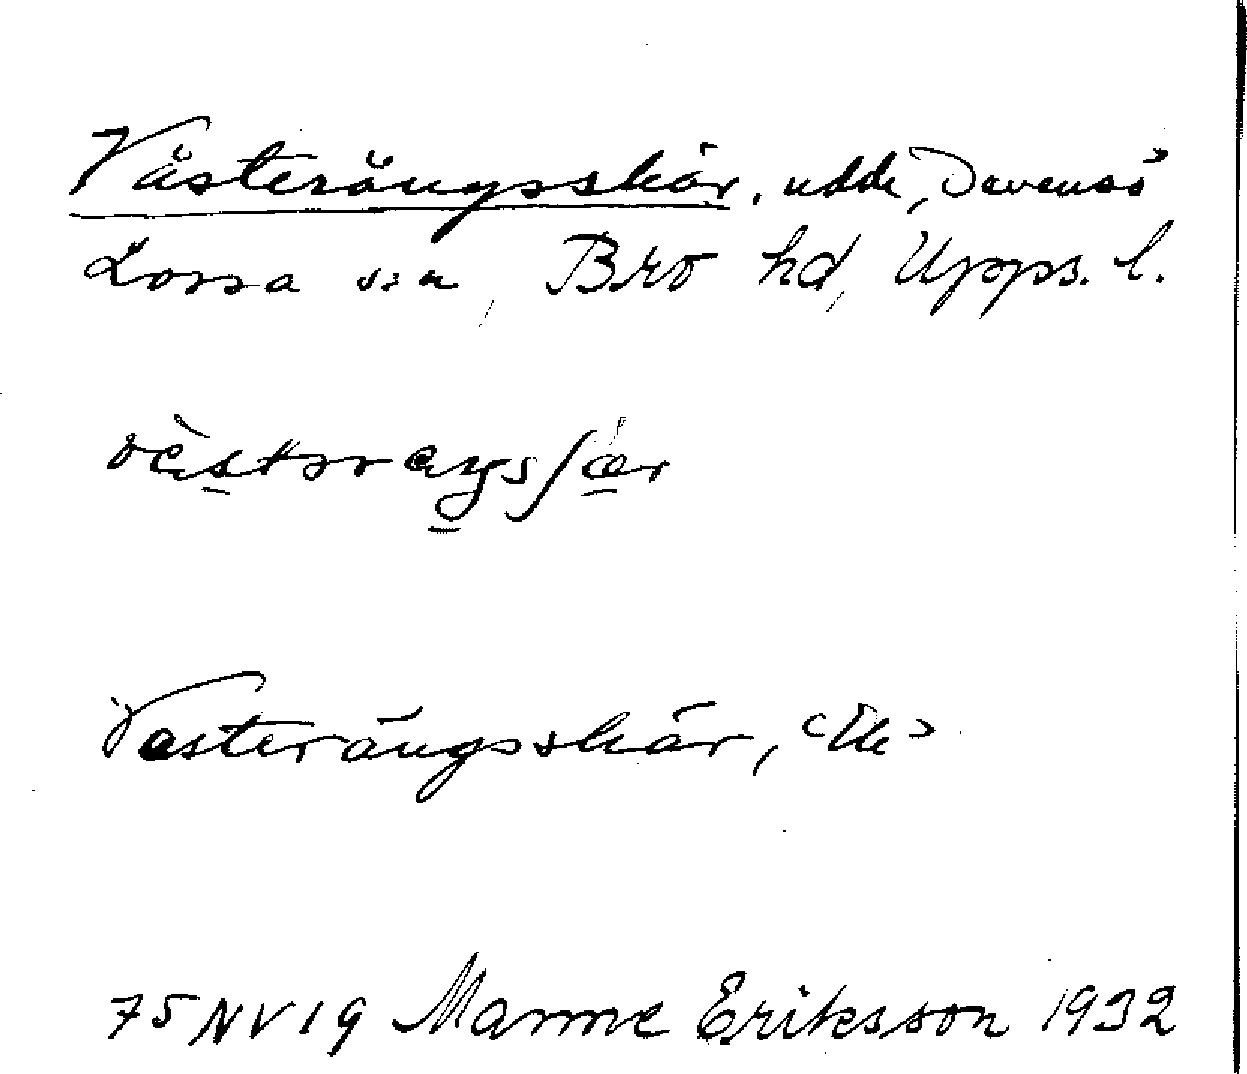 Västerängsskär, udde, Davensö
Lossa sn, Bro hd, Upps. l.
Västerängsskär, <Ek>
75NV19 Manne Eriksson 1932